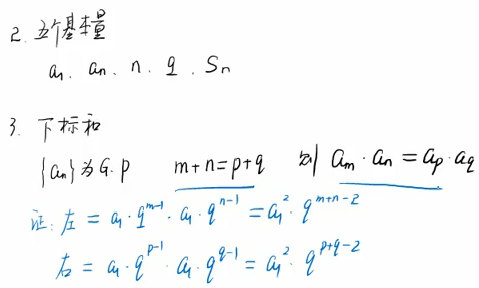 2. 五个基本量
a₁. aₙ. n. q. Sₙ
3. 下标和
{aₙ}为G.P m+n=p+q 则 aₘ·aₙ=aₚ·a_q
证: 左 = a₁·q^{m-1}·a₁·q^{n-1} = a₁²·q^{m+n-2}
右 = a₁·q^{p-1}·a₁·q^{q-1} = a₁²·q^{p+q-2}